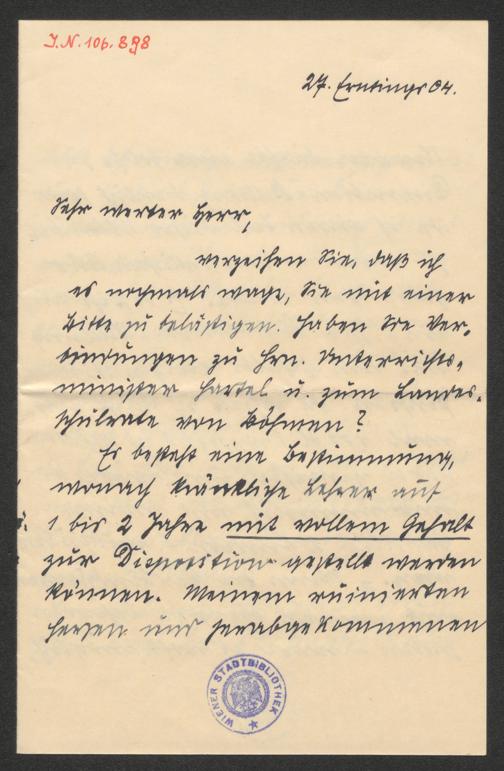 J.N. 106.898
27. Erntings 04.
Sehr werter Herr,
verzeihen Sie, daß ich
es nochmals wage, Sie mit einer
Bitte zu belästigen. Haben Sie Ver-
bindungen zu Hrn. Unterrichts-
minister Hartel u. zum Landes-
schulrate von Böhmen?
Es besteht eine Bestimmung,
wonach kränkliche Lehrer auf
1 bis 2 Jahre mit vollem Gehalt
zur Disposition gestellt werden
können. Meinem ruinierten
Herzen und herabgekommenen
WIENER STADTBIBLIOTHEK